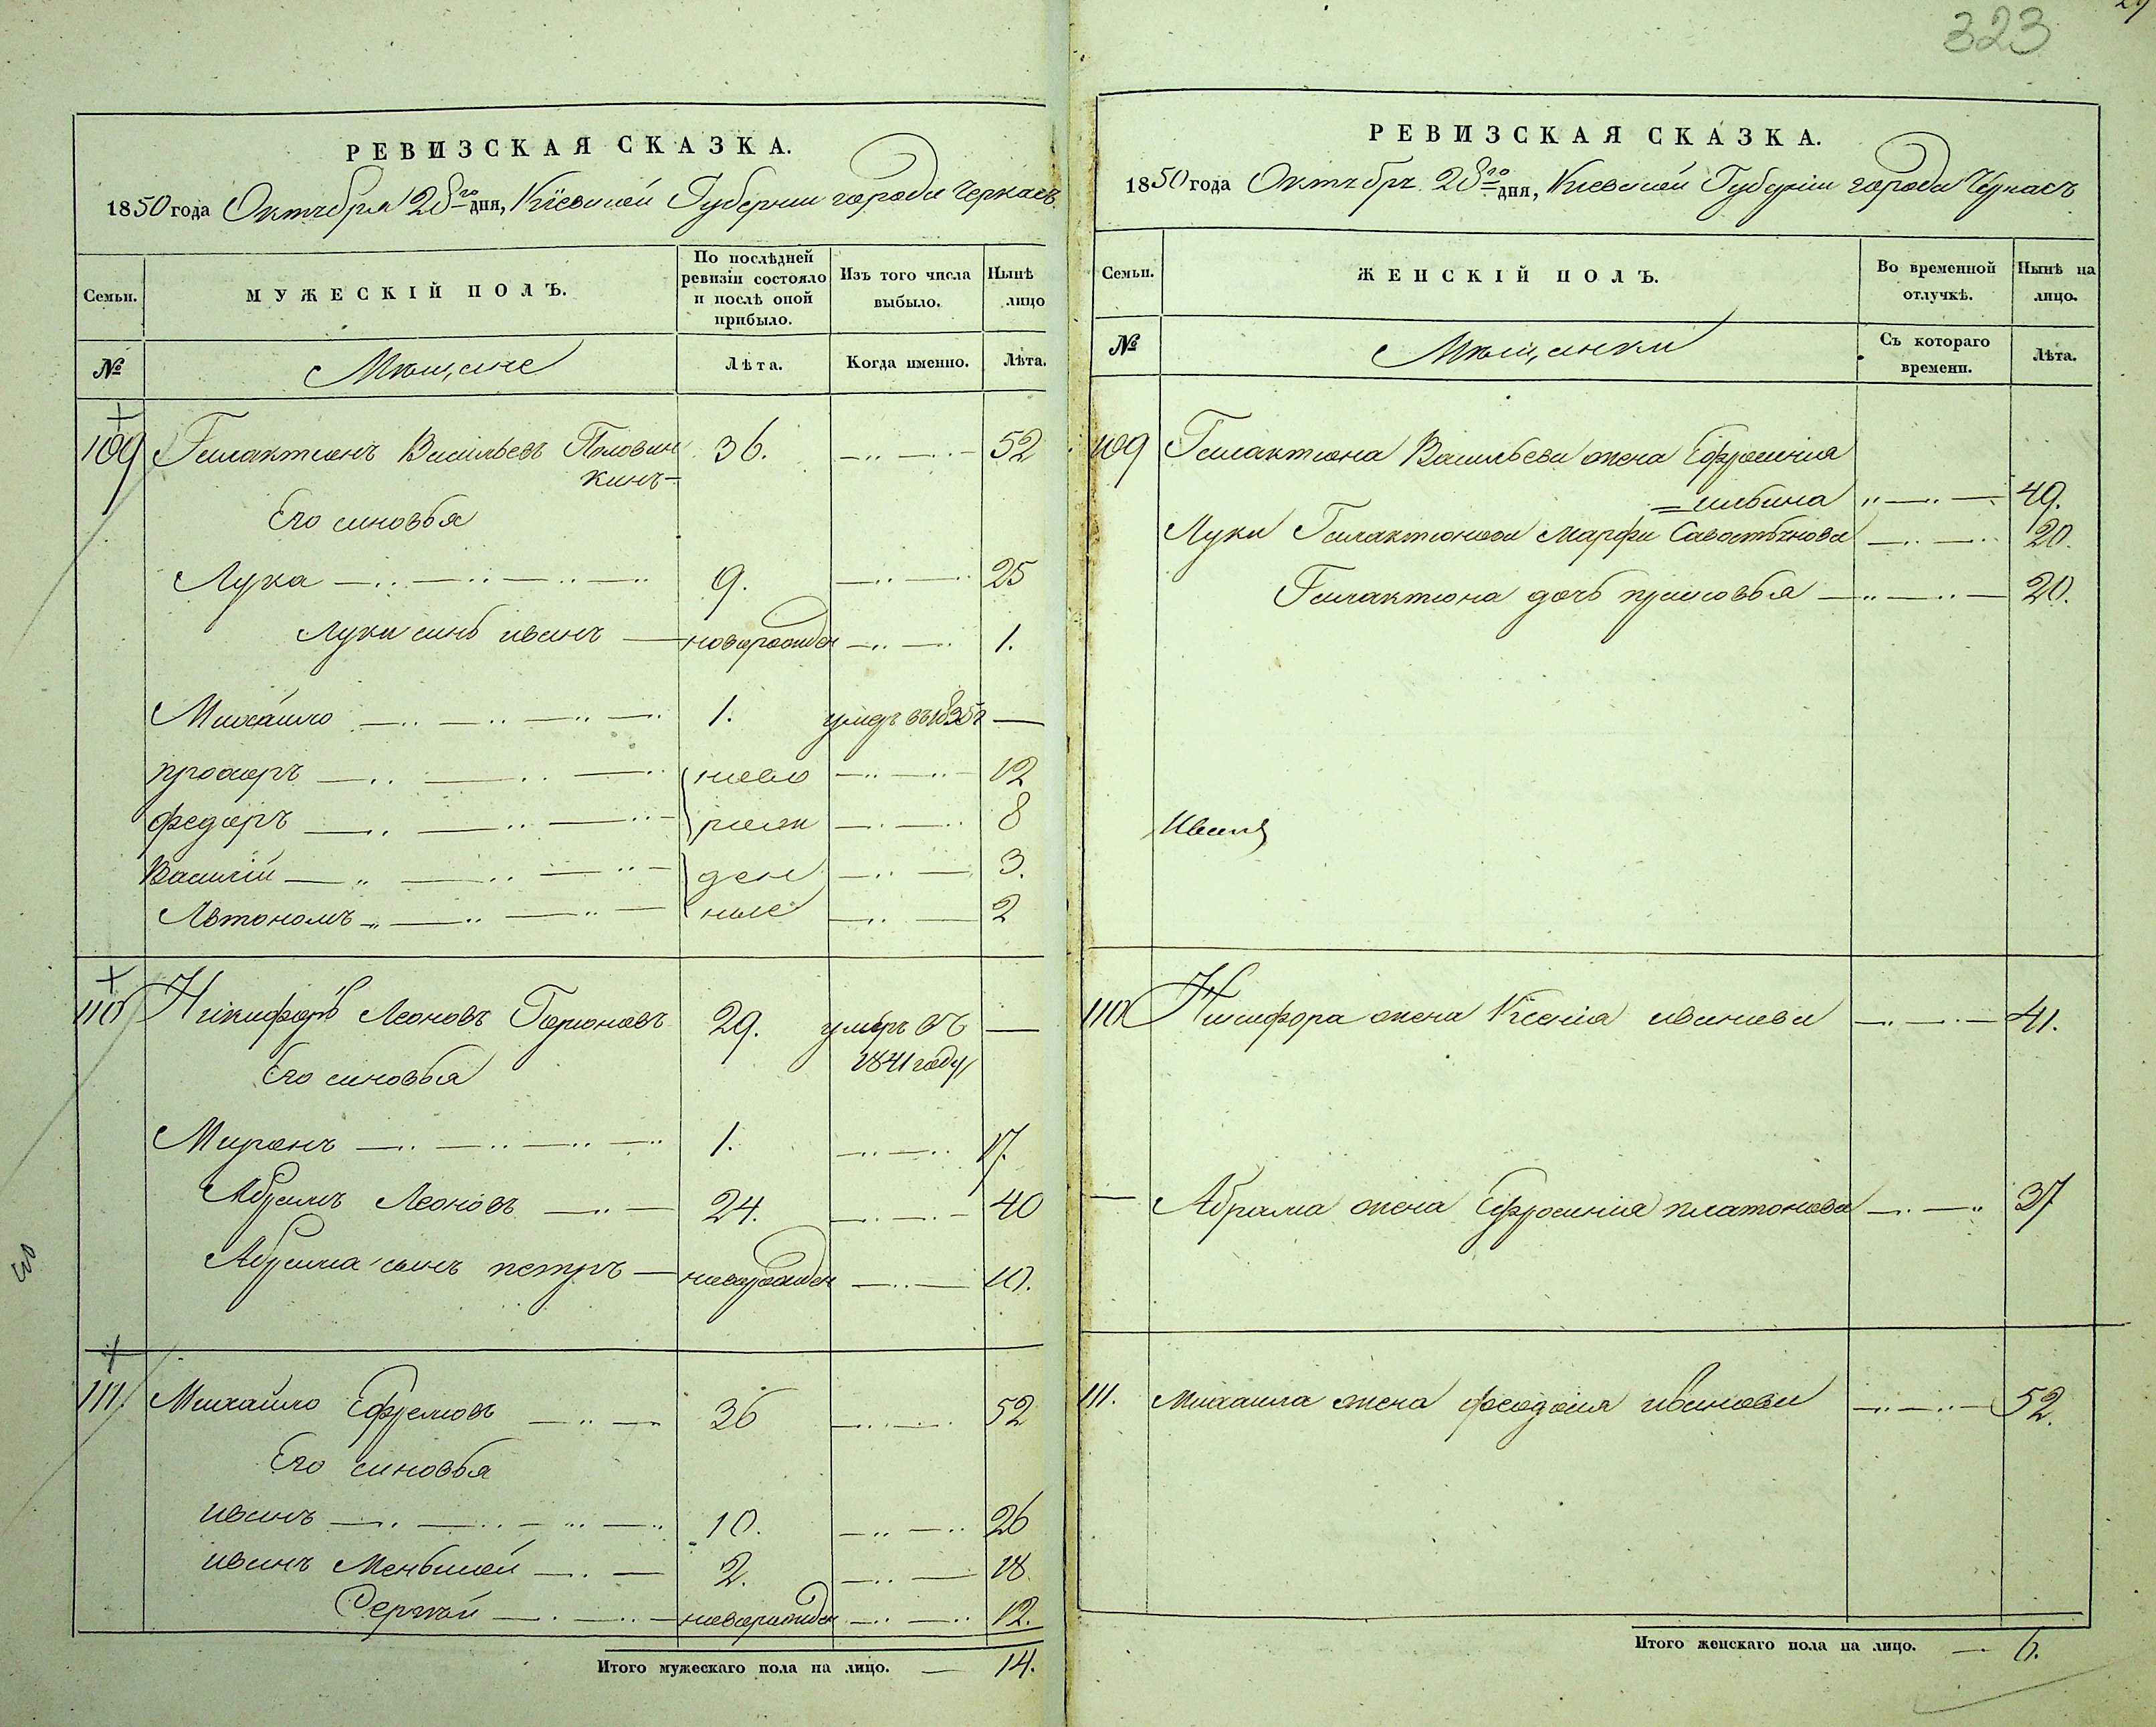 323
РЕВИЗСКАЯ СКАЗКА.
1850 года Октября 28го дня, Кіевской Губернии города Черкасъ
Семьи. МУЖЕСКІЙ ПОЛЪ. По послѣдней ревизіи состояло и послѣ оной прибыло. Изъ того числа выбыло. Нынѣ лицо
№ Мѣщане Лѣта. Когда именно. Лѣта.
109 Галактионъ Васильевъ Половин 36. 52
кинъ
Его синовья
Лука 9. 25
Луки синъ иванъ новорожден 1.
Михайло 1. умеръ въ 1835
прохоръ ново 12
федоръ рож 8
Василій ден 3.
Автономъ ные 2
110 Никифоръ Леоновъ 29. умеръ въ
1841 году
Его синовья
Миронъ 1. 17.
Абрамъ Леоновъ 24. 40
Абрама синъ петръ новорожден 10.
111. Михайло Ефремовъ 36 52
Его синовья
иванъ 10. 26
иванъ Меньшой 2. 18
Сергѣй новорожден 12.
Итого мужескаго пола на лицо. 14.
РЕВИЗСКАЯ СКАЗКА.
1850 года Октября 28го дня, Кіевской Губерніи города Черкасъ
Семьи. ЖЕНСКІЙ ПОЛЪ. Во временной отлучкѣ. Нынѣ на лицо.
№ Мѣщанки Съ котораго времени. Лѣта.
109 Галактиона Васильева жена Ефросиния
49.
Луки Галактионова Марфа Савостьянова 20.
Галактиона дочь прасковья 20.
Иванъ
110 Никифора жена Ксенія иванова 41.
Абрама жена Ефросиния платонова 37
111. Михаила жена феодосия иванова 52.
Итого женскаго пола на лицо. 6.